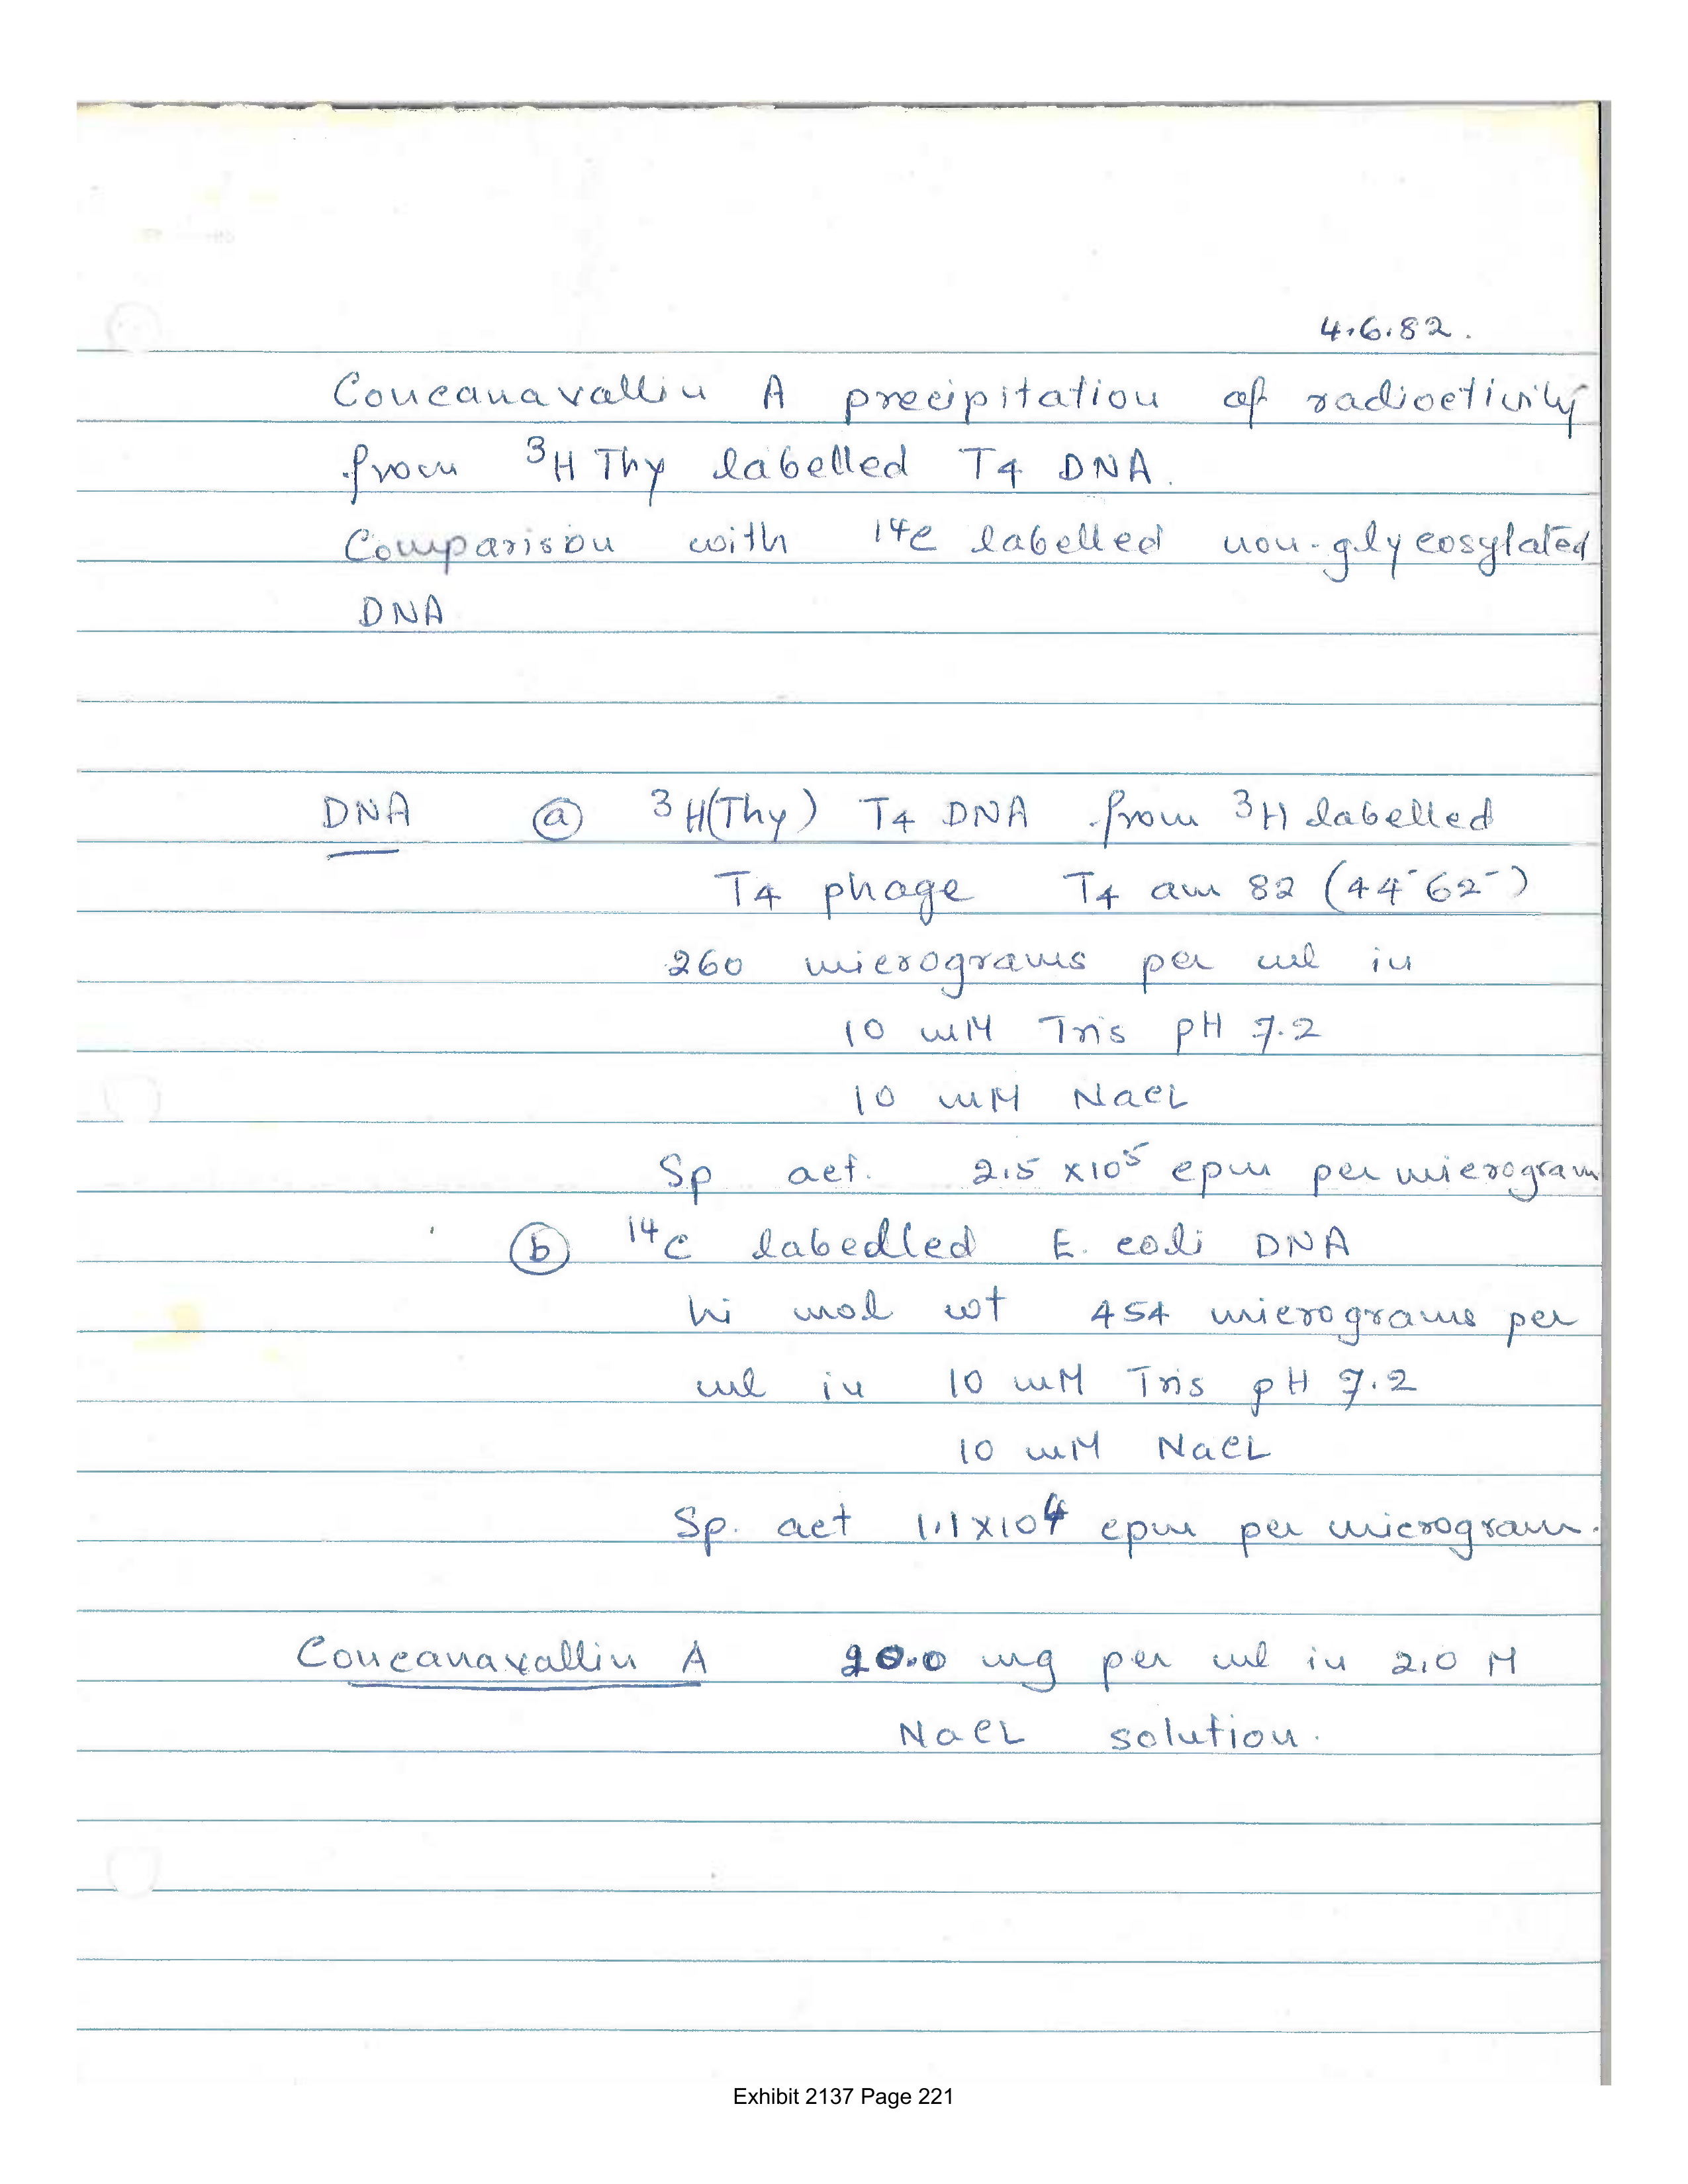 4.6.82.
Concanavallin A precipitation of radioctivity
from ³H Thy labelled T4 DNA.
Comparison with ¹⁴C labelled non-glycosylated
DNA
DNA ⓐ ³H(Thy) T4 DNA from ³H labelled
T4 phage T4 am 82 (44⁻62⁻)
260 micrograms per ml in
10 mM Tris pH 7.2
10 mM NaCl
Sp act. 2.5 x10⁵ cpm per microgram
ⓑ ¹⁴C labedled E. coli DNA
hi mol wt 454 micrograms per
ml in 10 mM Tris pH 7.2
10 mM NaCl
Sp. act 1.1x10⁴ cpm per microgram.
Concanavallin A 20.0 mg per ml in 2.0 M
NaCl solution.
Exhibit 2137 Page 221